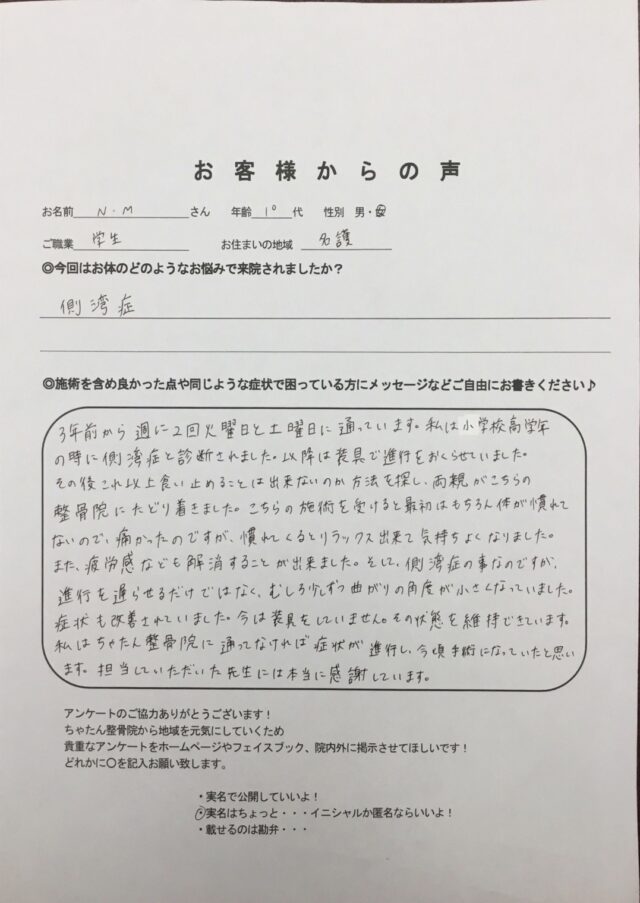 お客様からの声
お名前 N.M さん 年齢 10 代 性別 男・女
ご職業 学生 お住まいの地域 名護
◎今回はお体のどのようなお悩みで来院されましたか？
側湾症
◎施術を含め良かった点や同じような症状で困っている方にメッセージなどご自由にお書きください♪
3年前から週に2回火曜日と土曜日に通っています。私は小学校高学年
の時に側湾症と診断されました。以降は装具で進行をおくらせていました。
その後これ以上食い止めることは出来ないのか方法を探し、両親がこちらの
整骨院にたどり着きました。こちらの施術を受けると最初はもちろん体が慣れて
ないので、痛かったのですが、慣れてくるとリラックス出来て気持ちよくなりました。
また、疲労感なども解消することが出来ました。そして、側湾症の事なのですが、
進行を遅らせるだけではなく、むしろ少しずつ曲がりの角度が小さくなっていました。
症状も改善されていました。今は装具をしていません。その状態を維持できています。
私はちゃたん整骨院に通ってなければ症状が進行し、今頃手術になっていたと思い
ます。担当していただいた先生には本当に感謝しています。
アンケートのご協力ありがとうございます！
ちゃたん整骨院から地域を元気にしていくため
貴重なアンケートをホームページやフェイスブック、院内外に掲示させてほしいです！
どれかに〇を記入お願い致します。
・実名で公開していいよ！
・実名はちょっと・・・イニシャルか匿名ならいいよ！
・載せるのは勘弁・・・